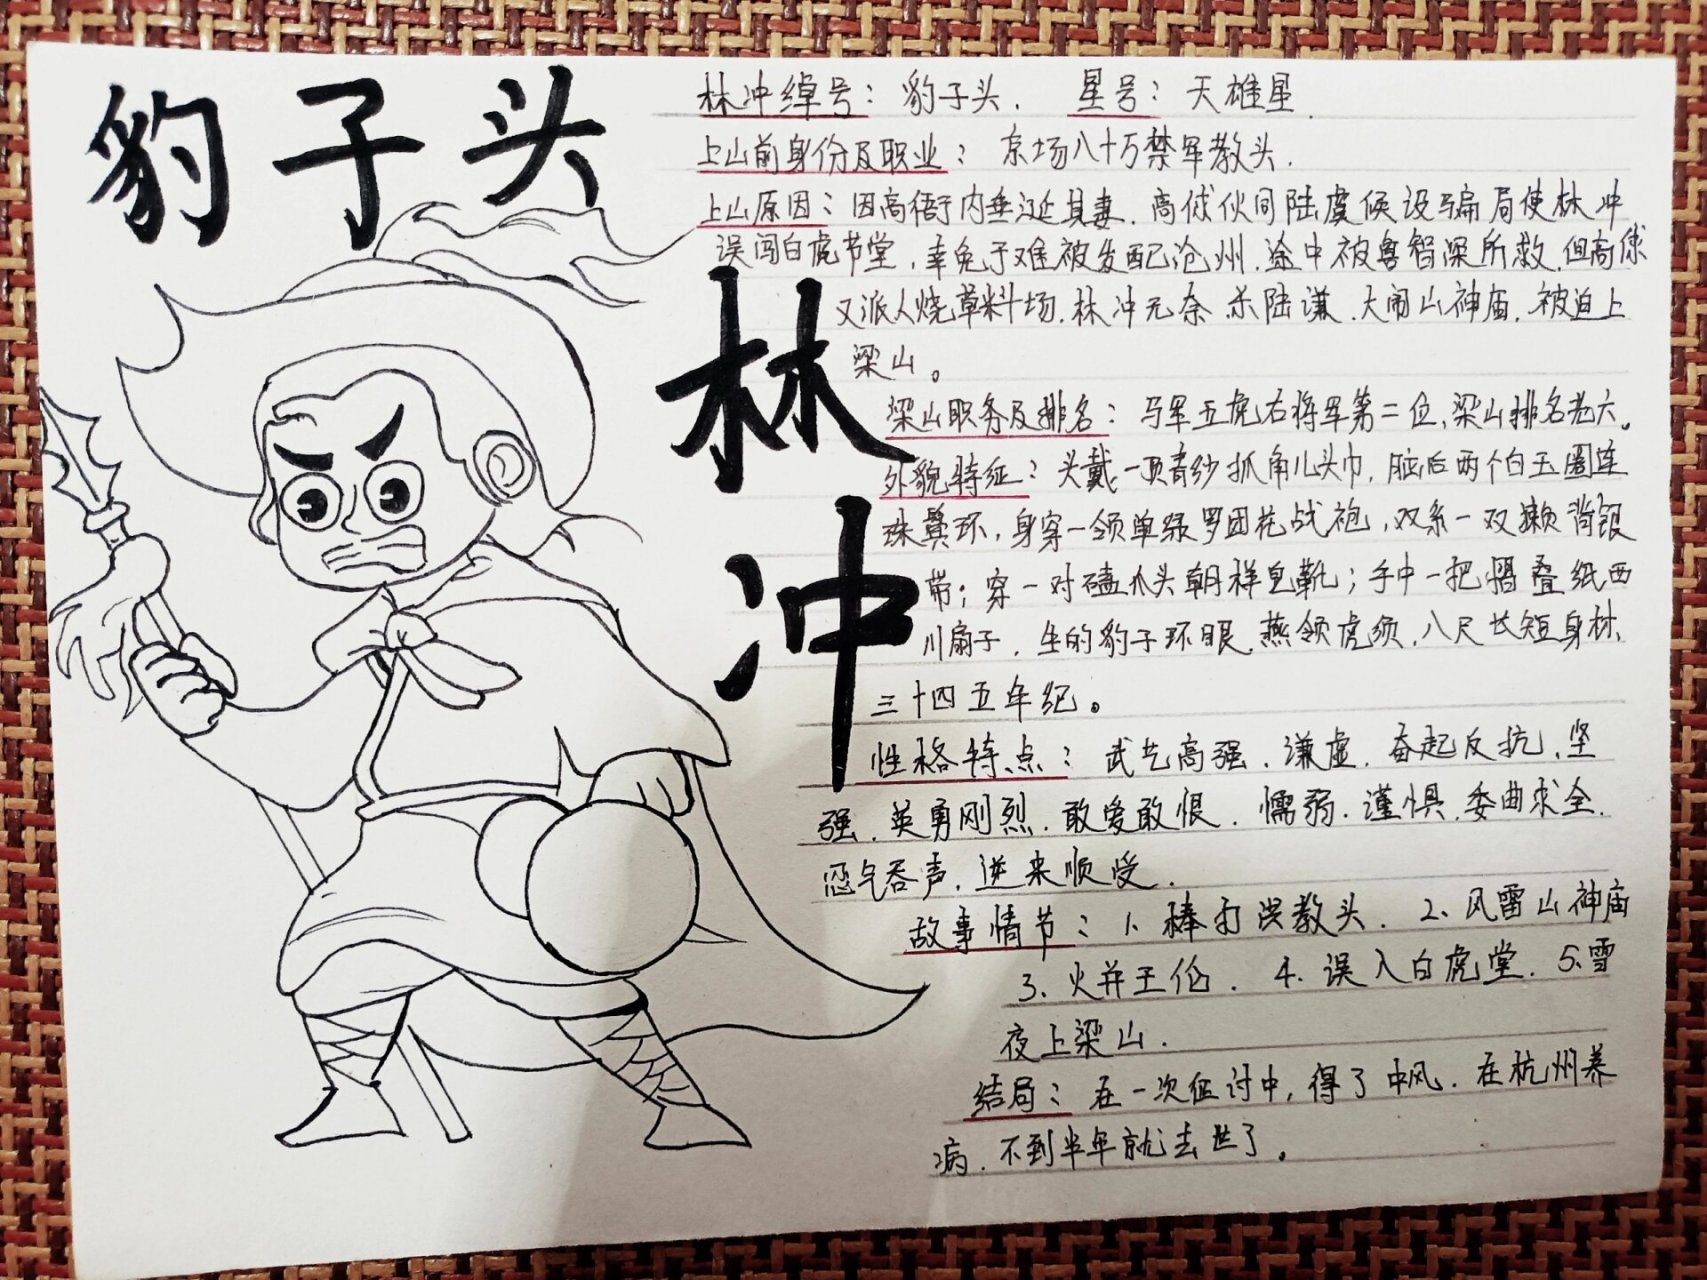 豹子头
林冲
林冲绰号：豹子头． 星号：天雄星
上山前身份及职业：京场八十万禁军教头．
上山原因：因高衙内垂涎其妻．高俅伙同陆虞候设骗局使林冲
误闯白虎节堂，幸免于难被发配沧州．途中被鲁智深所救．但高俅
又派人烧草料场．林冲无奈杀陆谦．大闹山神庙．被迫上
梁山。
梁山职务及排名：马军五虎右将军第二位，梁山排名老六。
外貌特征：头戴一顶青纱抓角儿头巾，脑后两个白玉圈连
珠鬓环，身穿一领单绿罗团花战袍，双系一双獭背银
带；穿一对磕爪头朝样皂靴；手中一把摺叠纸西
川扇子．生的豹子环眼．燕领虎须．八尺长短身材．
三十四五年纪。
性格特点：武艺高强．谦虚．奋起反抗．坚
强．英勇刚烈．敢爱敢恨．懦弱．谨惧．委曲求全．
忍气吞声．逆来顺受．
故事情节：1．棒打洪教头．2．风雷山神庙
3．火并王伦．4．误入白虎堂．5．雪
夜上梁山．
结局：在一次征讨中，得了中风．在杭州养
病．不到半年就去世了。